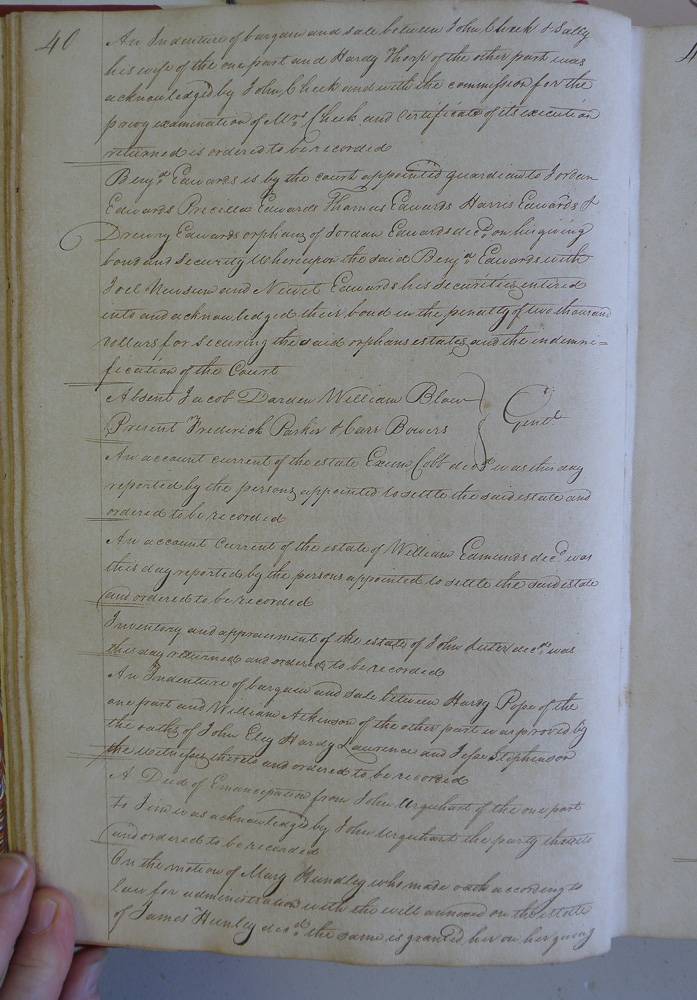 40
An Indenture of bargain and sale between John Cheek & Sally
his wife of the one part and Hardy Thorp of the other part was
acknowledged by John Cheek and with the commission for the
privy examination of Mrs. Cheek and Certificate of its execution
returned is ordered to be recorded
Benja. Edwards is by the court appointed guardian to Jordan
Edwards Precilla Edwards Thomas Edwards Harris Edwards &
Drewry Edwards orphans of Jordan Edwards decd. on his giving
bond and Security Whereupon the said Benja. Edwards with
Joel Newsum and Newit Edwards his securities entered
into and acknowledged their bond in the penalty of two thousand
dollars for securing the said orphans estates and the indemni=
fication of the Court
Absent Jacob Darden William Blow
Present Frederick Parker & Carr Bowers
Gent
An account current of the estate Exum Cobb decd. was this day
reported by the persons appointed to settle the said estate and
ordered to be recorded
An account Current of the estate of William Edmunds decd. was
this day reported by the persons appointed to settle the said estate
and ordered to be recorded
Inventory and appraisment of the estate of John decd. was
this day returned and ordered to be recorded
An Indenture of bargain and sale between Hardy Pope of the
one part and William Atkinson of the other part was proved by
the oaths of John Eley Hardy Lawrence and Jesse Stephenson
the witnesses thereto and ordered to be recorded
A Deed of Emancipation from John Urquhart of the one part
to was acknowledged by John Urquhart the party thereto
and ordered to be recorded
On the motion of Mary Hundley who made oath according to
law for administration with the will annexed on the estate
of James Hunley decd. the same is granted her on her giving